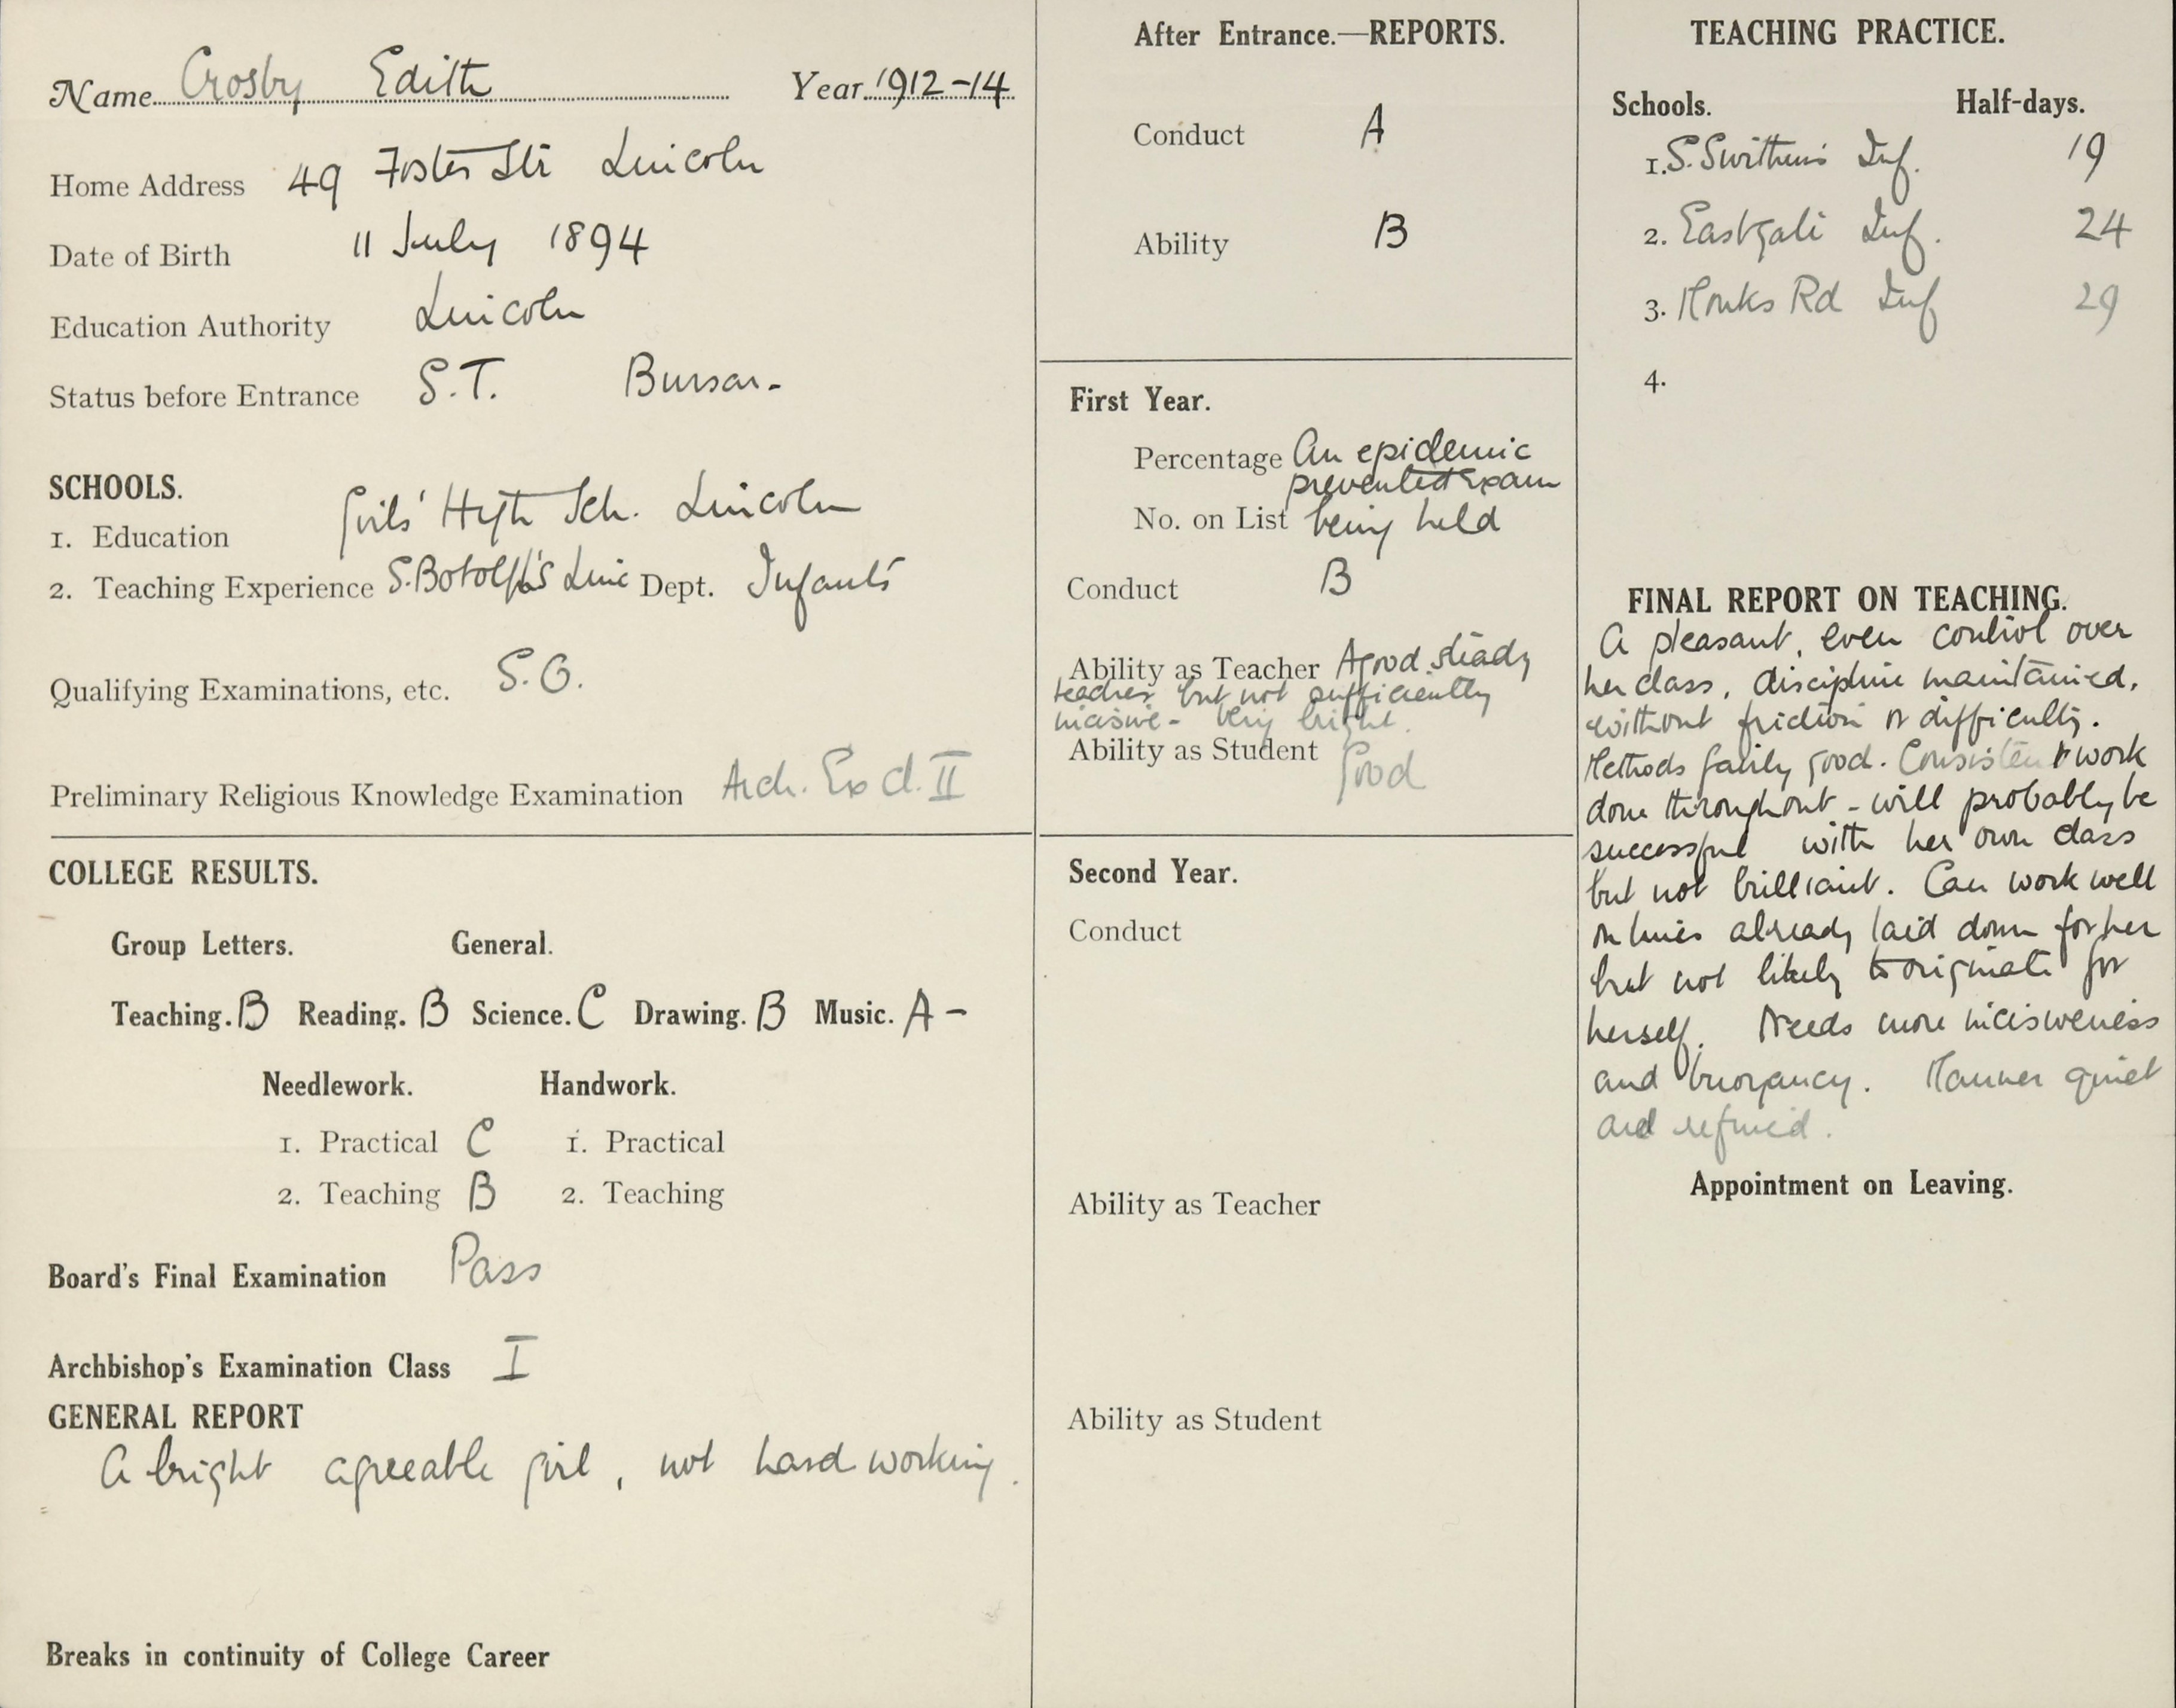 Name Crosby Edith Year 1912-14
Home Address 49 Foster Str Lincoln
Date of Birth 11 July 1894
Education Authority Lincoln
Status before Entrance S.T. Bursar-
SCHOOLS.
1. Education Girls' High Sch. Lincoln
2. Teaching Experience S.Botolph's Linc Dept. Infants
Qualifying Examinations, etc. S.O.
Preliminary Religious Knowledge Examination Arch. Ex cl. II
COLLEGE RESULTS.
Group Letters. General.
Teaching. B Reading. B Science. C Drawing. B Music. A -
Needlework. Handwork.
1. Practical C 1. Practical
2. Teaching B 2. Teaching
Board's Final Examination Pass
Archbishop's Examination Class I
GENERAL REPORT
A bright agreeable girl, not hard working.
Breaks in continuity of College Career
After Entrance.—REPORTS.
Conduct A
Ability B
First Year.
Percentage An epidemic
prevented exam
No. on List being held
Conduct B
Ability as Teacher A good steady
teacher but not sufficiently
incisive - very bright.
Ability as Student Good
Second Year.
Conduct
Ability as Teacher
Ability as Student
TEACHING PRACTICE.
Schools. Half-days.
1. S. Swithin's Inf. 19
2. Eastgate Inf. 24
3. Monks Rd Inf 29
4.
FINAL REPORT ON TEACHING.
A pleasant, even control over
her class, discipline maintained,
without friction or difficulty.
Methods fairly good. Consistent work
done throughout - will probably be
successful with her own class
but not brilliant. Can work well
on lines already laid down for her
but not likely to originate for
herself. Needs more incisiveness
and buoyancy. Manner quiet
and refined.
Appointment on Leaving.